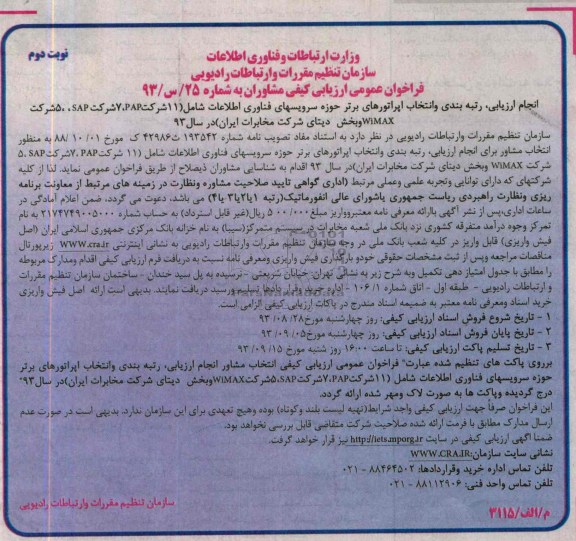 نوبت دوم
وزارت ارتباطات و فناوری اطلاعات
سازمان تنظیم مقررات و ارتباطات رادیویی
فراخوان عمومی ارزیابی کیفی مشاوران به شماره ۲۵/س/۹۳
انجام ارزیابی، رتبه بندی وانتخاب اپراتورهای برتر حوزه سرویسهای فناوری اطلاعات شامل(۱۱شرکتPAP،۷شرکتSAP ،۵شرکت
WiMAXوبخش دیتای شرکت مخابرات ایران)در سال۹۳
سازمان تنظیم مقررات وارتباطات رادیویی در نظر دارد به استناد مفاد تصویب نامه شماره ۱۹۳۵۴۲/ت۴۲۹۸۶ ک مورخ ۸۸/۱۰/۰۱ به منظور
انتخاب مشاور برای انجام ارزیابی، رتبه بندی وانتخاب اپراتورهای برتر حوزه سرویسهای فناوری اطلاعات شامل (۱۱ شرکت PAP، ۷شرکت SAP، ۵
شرکت WiMAX وبخش دیتای شرکت مخابرات ایران)در سال ۹۳ اقدام به شناسایی مشاوران ذیصلاح از طریق فراخوان عمومی نماید. لذا از کلیه
شرکتهای که دارای توانایی وتجربه علمی وعملی مرتبط (اداری گواهی تایید صلاحیت مشاوره ونظارت در زمینه های مرتبط از معاونت برنامه
ریزی ونظارت راهبردی ریاست جمهوری یاشورای عالی انفورماتیک(رتبه ۱یا۲یا۳ یا۴) می باشد، دعوت می گردد، ضمن اعلام آمادگی در
ساعات اداری،پس از نشر آگهی باارائه معرفی نامه معتبروواریز مبلغ۵۰۰/۰۰۰ ریال(غیر قابل استرداد) به حساب شماره ۲۱۷۴۷۴۹۰۰۵۰۰۰ به نام
تمرکز وجوه درآمد متفرقه کشوری نزد بانک ملی شعبه مخابرات در سیستم متمرکز(سیبا) به نام خزانه بانک مرکزی جمهوری اسلامی ایران (اصل
فیش واریزی) قابل واریز در کلیه شعب بانک ملی در وجه سازمان تنظیم مقررات وارتباطات رادیویی به نشانی اینترنتی www.cra.ir زیرپورتال
مناقصات مراجعه وپس از ثبت مشخصات حقوقی خودو بارگذاری فیش واریزی ومعرفی نامه نسبت به دریافت فرم ارزیابی کیفی اقدام ومدارک مربوطه
را مطابق با جدول امتیاز دهی تکمیل وبه شرح زیر به نشانی تهران- خیابان شریعتی - نرسیده به پل سید خندان - ساختمان سازمان تنظیم مقررات
و ارتباطات رادیویی - طبقه اول - اتاق شماره ۱۰۶/۱ - اداره خرید وقراردادها تسلیم ورسید دریافت نمایند. بدیهی است ارائه اصل فیش واریزی
خرید اسناد ومعرفی نامه معتبر به ضمیمه اسناد مندرج در پاکات ارزیابی کیفی الزامی است.
۱ - تاریخ شروع فروش اسناد ارزیابی کیفی: روز چهارشنبه مورخ۹۳/۰۸/۲۸
۲ - تاریخ پایان فروش اسناد ارزیابی کیفی: روز چهارشنبه مورخ۹۳/۰۹/۰۵
۳ - تاریخ تسلیم پاکت ارزیابی کیفی: تا ساعت ۱۶:۰۰ روز شنبه مورخ ۹۳/۰۹/۱۵
برروی پاکت های تنظیم شده عبارت" فراخوان عمومی ارزیابی کیفی انتخاب مشاور انجام ارزیابی، رتبه بندی وانتخاب اپراتورهای برتر
حوزه سرویسهای فناوری اطلاعات شامل (۱۱شرکتPAP،۷شرکتSAP،۵شرکتWiMAXوبخش دیتای شرکت مخابرات ایران)در سال۹۳"
درج گردیده وپاکت ها به صورت لاک ومهر شده ارائه گردد.
این فراخوان صرفاً جهت ارزیابی کیفی واجد شرایط(تهیه لیست بلند وکوتاه) بوده وهیچ تعهدی برای این سازمان ندارد. بدیهی است در صورت عدم
ارسال مدارک مطابق با فرمت ارائه شده صلاحیت شرکت متقاضی قابل بررسی نخواهد بود.
ضمنا آگهی ارزیابی کیفی در سایت http://iets.mporg.ir نیز قرار خواهد گرفت.
نشانی سایت سازمان:WWW.CRA.IR
تلفن تماس اداره خرید وقراردادها: ۸۸۴۶۴۵۰۲ - ۰۲۱
تلفن تماس واحد فنی: ۸۸۱۱۲۹۰۶ - ۰۲۱
سازمان تنظیم مقررات وارتباطات رادیویی
م/الف/۳۱۱۵